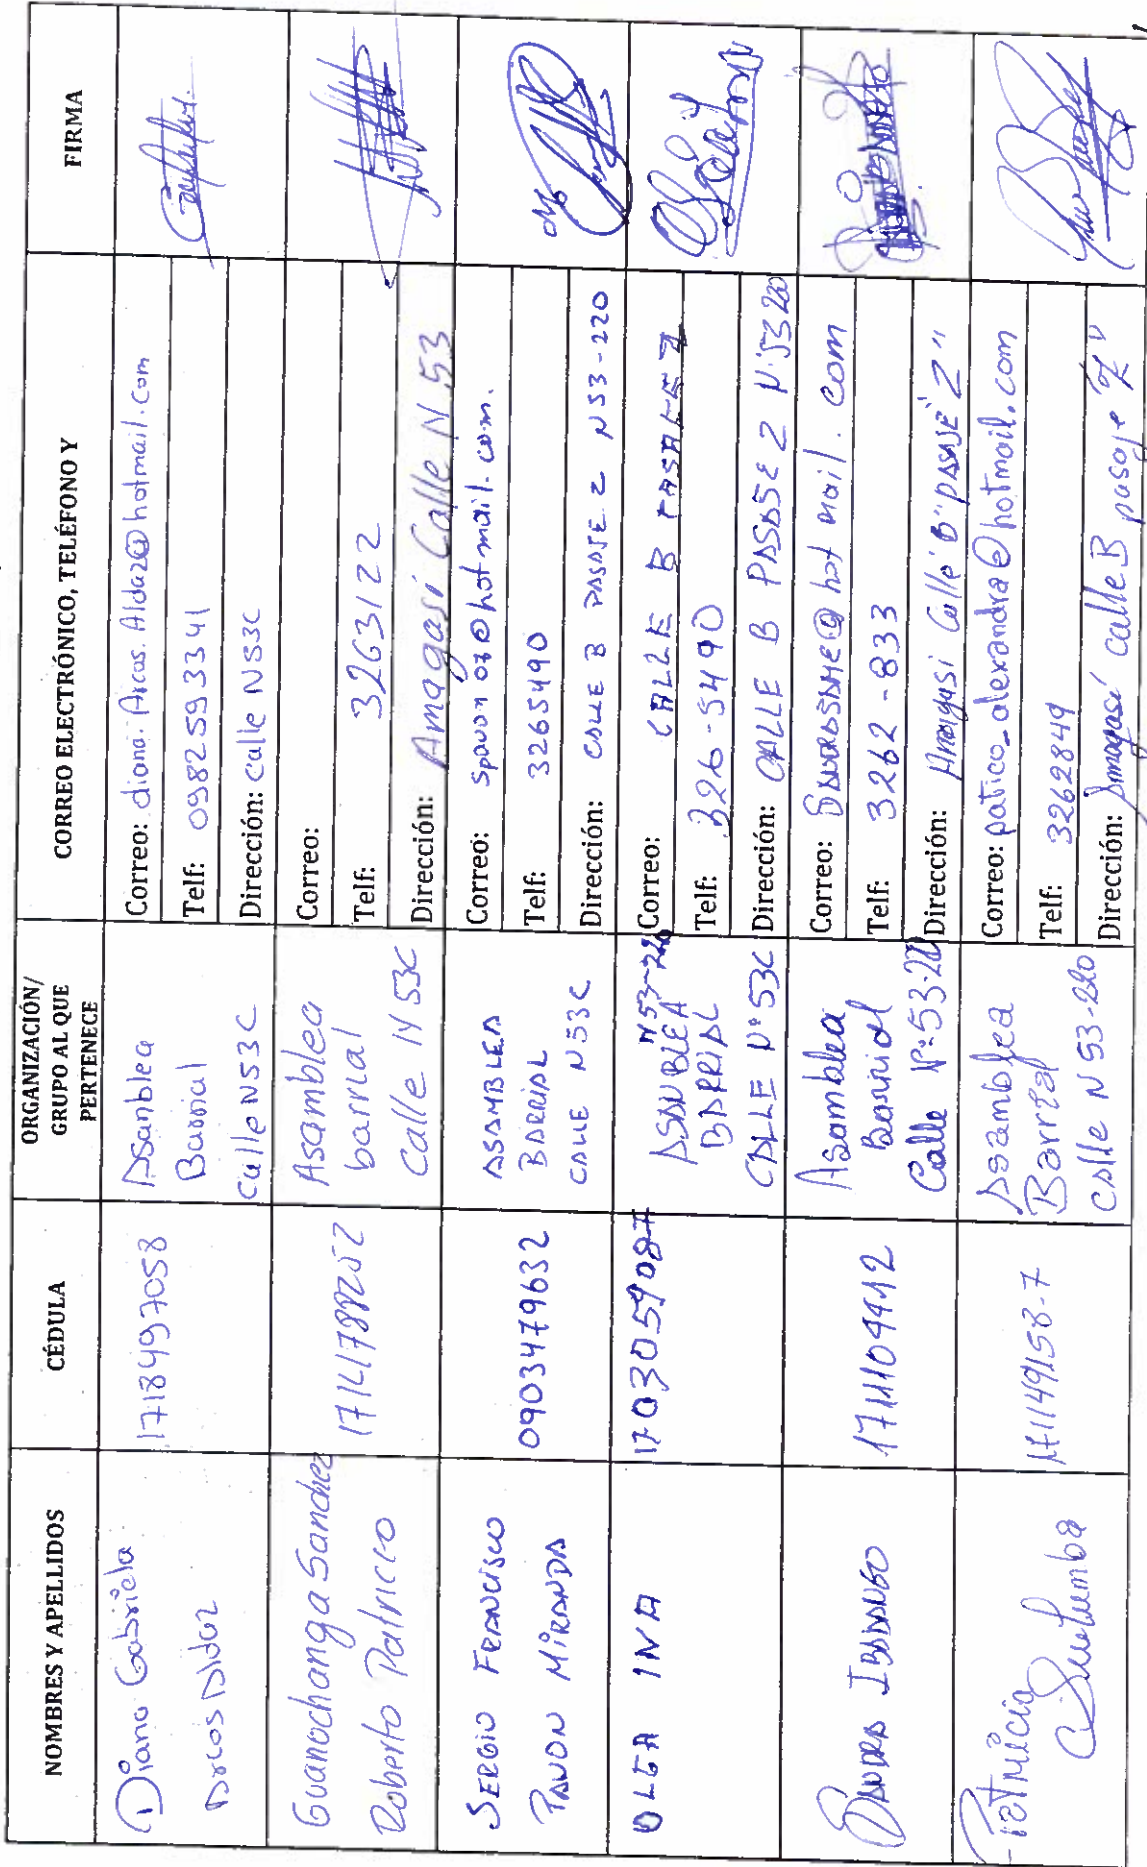 NOMBRES Y APELLIDOS
CÉDULA
ORGANIZACIÓN/
GRUPO AL QUE
PERTENECE
CORREO ELECTRÓNICO, TELÉFONO Y
FIRMA
Diana Gabriela
Arcos Aldaz
1718497058
Asanblea
Barrial
Calle N53C
Correo: diana.Arcos.Aldaz@hotmail.com
Telf: 0982593341
Dirección: Calle N53C
Guanochanga Sanchez
Roberto Patricio
Asamblea
barrial
Calle N 53C
Correo:
Telf: 3263122
Dirección: Amagasí Calle N 53
SERGIO FRANCISCO
PAVON MIRANDA
0903479632
ASAMBLEA
BARRIAL
CALLE N53C
Correo: spavon07@hotmail.com.
Telf: 3265490
Dirección: CALLE B PASAJE Z N53-220
OLGA INA
1703059087
N53-220
ASANBLEA
BARRIAL
CALLE Nº53C
Correo: CALLE B PASAJE Z
Telf: 326-5490
Dirección: CALLE B PASAJE Z Nº53220
SANDRA IBADANGO
1711104412
Asamblea
Barrial
Calle Nº:53-220
Correo: @hot mail. com
Telf: 3262-833
Dirección: Amagasi Calle "B" PASAJE "Z"
Patricia
171149158-7
Asamblea
Barrial
Calle N 53-220
Correo: patico_alexandra@hotmail.com
Telf: 3262849
Dirección: Amagasí calle B pasaje "Z"